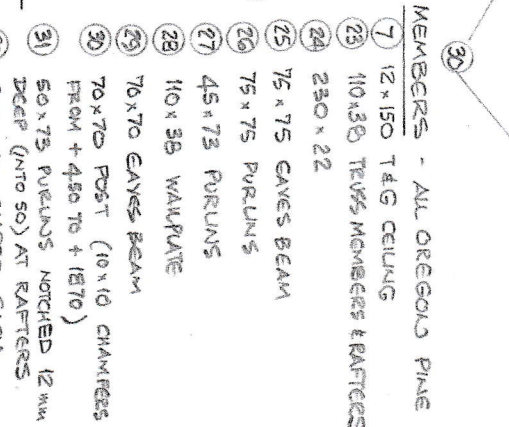 30
MEMBERS - ALL OREGON PINE
7 12 x 150 T & G CEILING
23 110 x 38 TRUSS MEMBERS & RAFTERS
24 230 x 22
25 75 x 75 EAVES BEAM
26 75 x 75 PURLINS
27 45 x 73 PURLINS
28 110 x 38 WALLPLATE
29 70 x 70 EAVES BEAM
30 70 x 70 POST (10 x 10 CHAMFERS
FROM + 450 TO + 1870)
31 50 x 73 PURLINS NOTCHED 12 mm
DEEP (INTO 50) AT RAFTERS